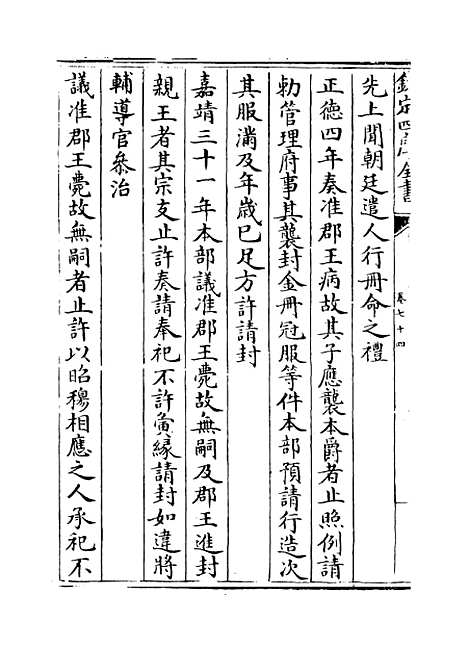 欽定四庫全書
卷七十四
先上聞朝廷遣人行冊命之禮
正德四年奏准郡王病故其子應襲本爵者止照例請
勅管理府事其襲封金冊冠服等件本部預請行造次
其服滿及年歲已足方許請封
嘉靖三十一年本部議准郡王薨故無嗣及郡王進封
親王者其宗支止許奏請奉祀不許夤緣請封如違將
輔導官叅治
議准郡王薨故無嗣者止許以昭穆相應之人承祀不